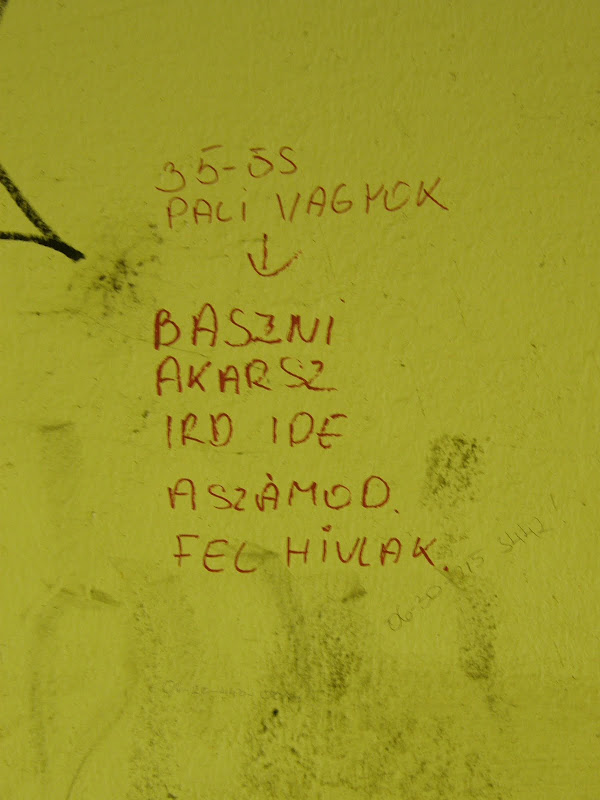 35-ÖS
PALI VAGYOK
BASZNI
AKARSZ
IRD IDE
A SZÁMOD.
FEL HÍVLAK.